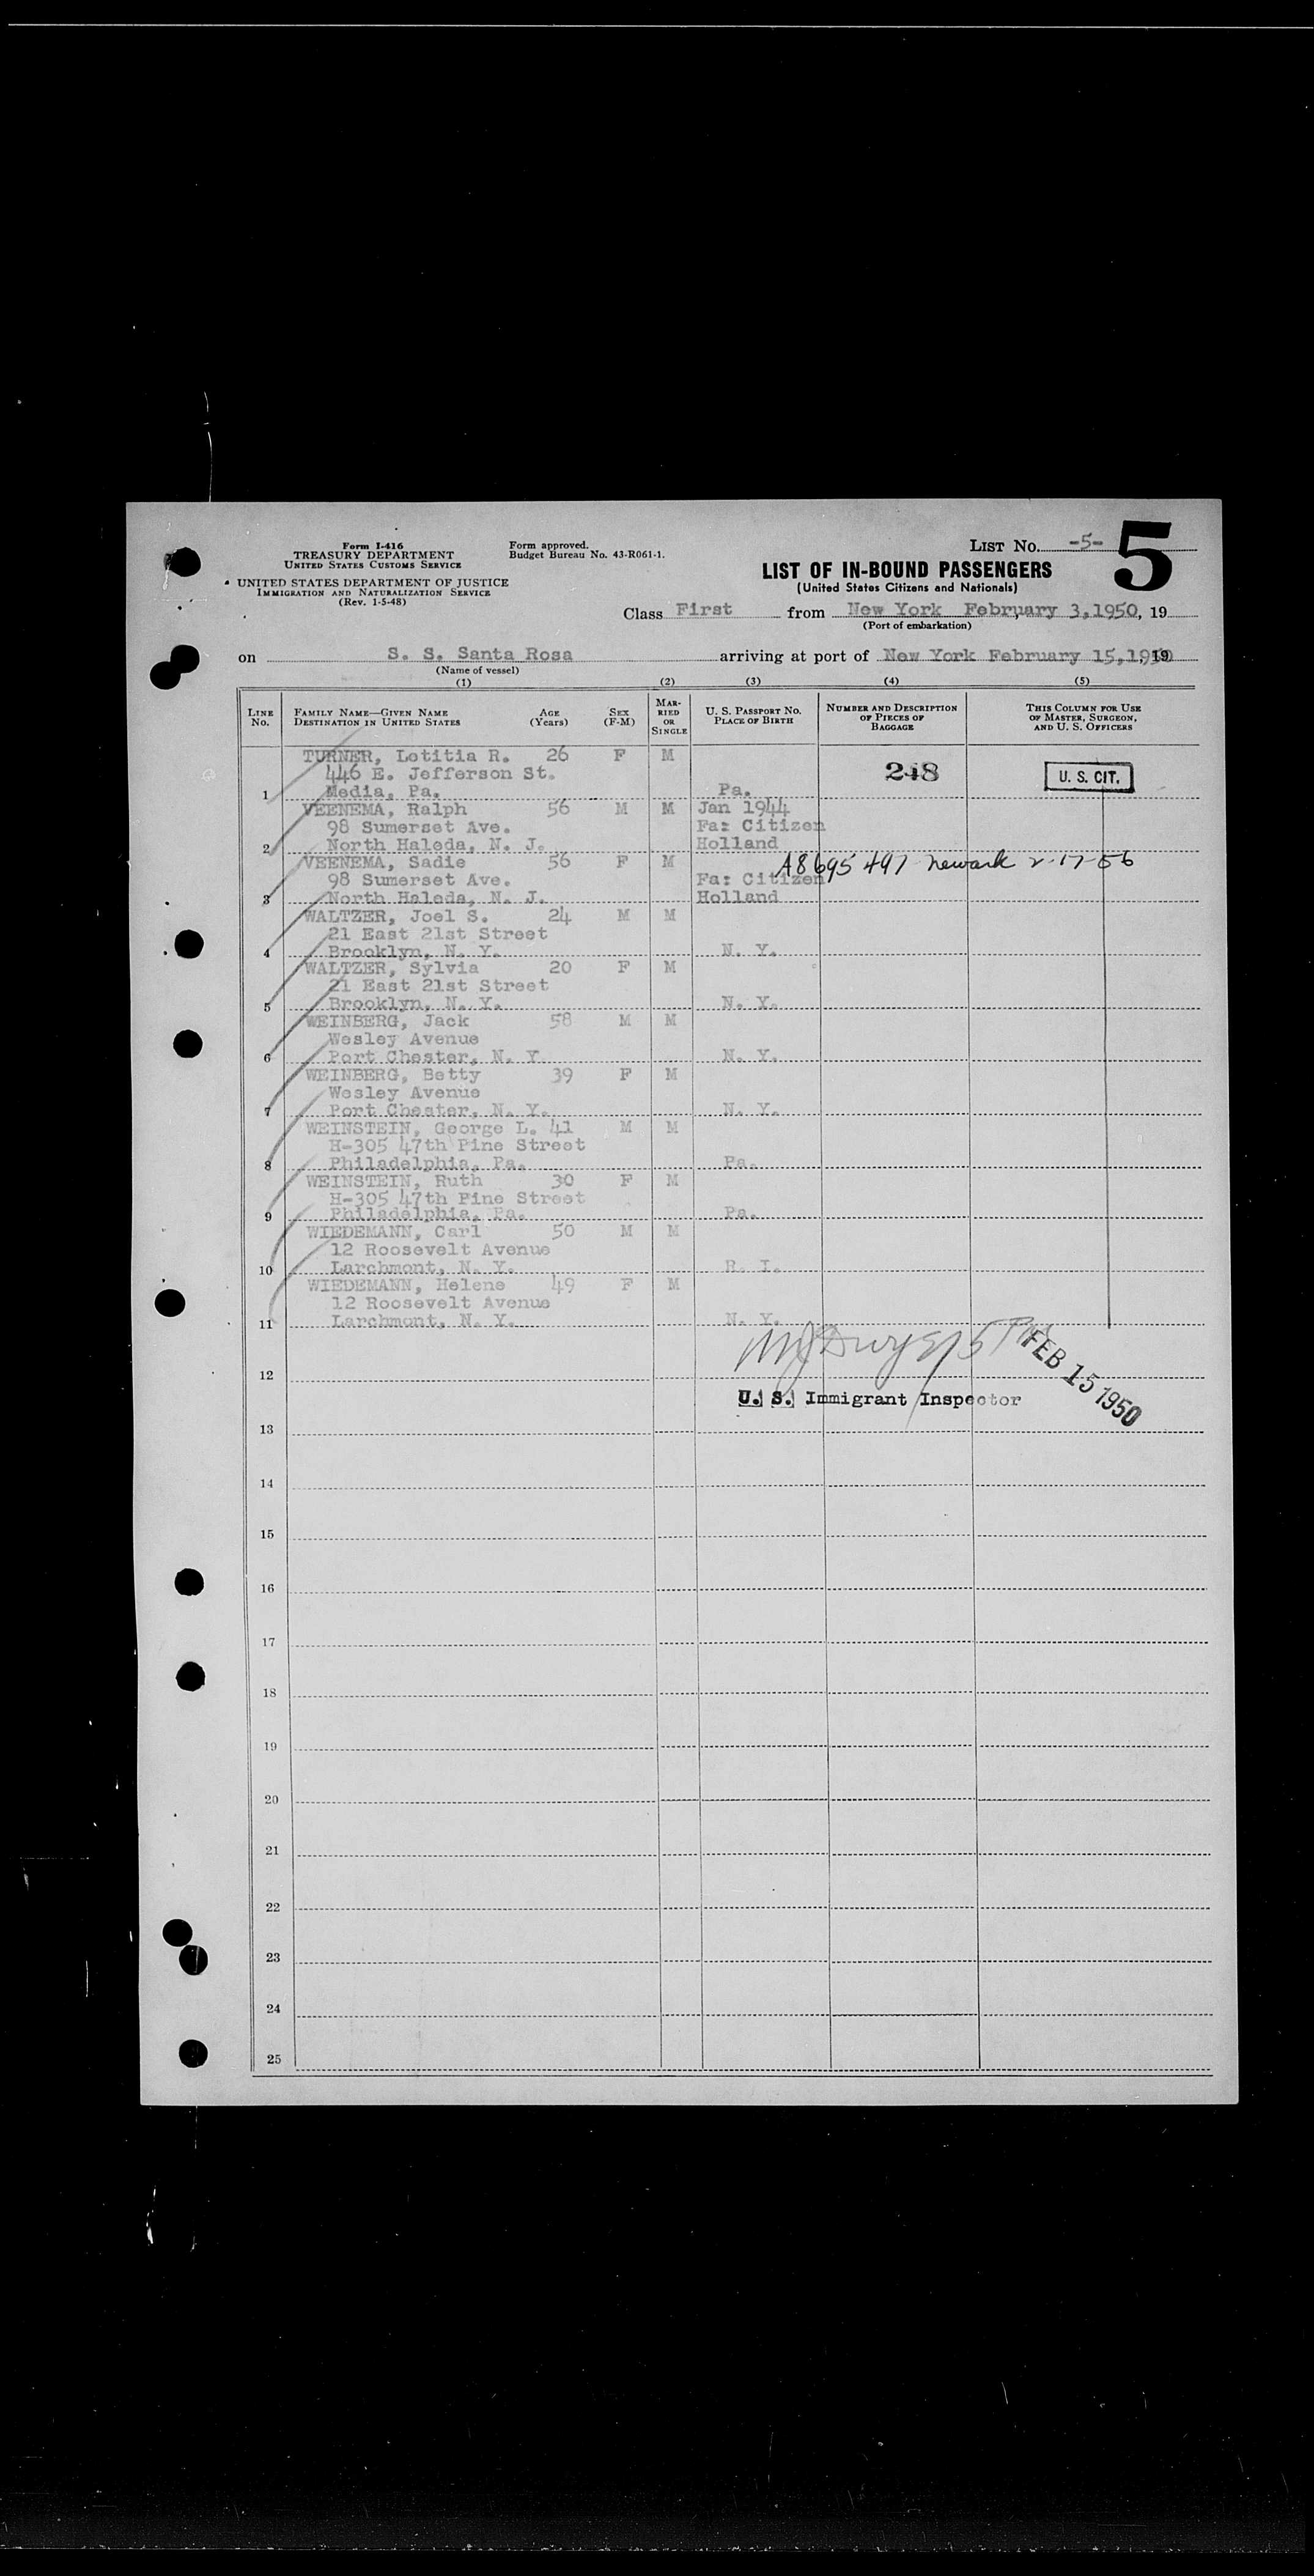 Form I-416
TREASURY DEPARTMENT
UNITED STATES CUSTOMS SERVICE
UNITED STATES DEPARTMENT OF JUSTICE
IMMIGRATION AND NATURALIZATION SERVICE
(Rev. 1-5-48)
Form approved.
Budget Bureau No. 43-R061-1.
LIST No. -5- 5
LIST OF IN-BOUND PASSENGERS
(United States Citizens and Nationals)
Class First from New York February 3,1950, 19
(Port of embarkation)
on S. S. Santa Rosa arriving at port of New York February 15,1950 19
(Name of vessel)
(1) (2) (3) (4) (5)
LINE No. FAMILY NAME—GIVEN NAME DESTINATION IN UNITED STATES AGE (Years) SEX (F-M) MARRIED OR SINGLE U. S. PASSPORT NO. PLACE OF BIRTH NUMBER AND DESCRIPTION OF PIECES OF BAGGAGE THIS COLUMN FOR USE OF MASTER, SURGEON, AND U. S. OFFICERS
TURNER, Letitia R. 26 F M
446 E. Jefferson St. 248 U. S. CIT.
1 Media, Pa. Pa.
VEENEMA, Ralph 56 M M Jan 1944
98 Sumerset Ave. Fa: Citizen
2 North Haleda, N. J. Holland
VEENEMA, Sadie 56 F M A8695 497 Newark 2-17-56
98 Sumerset Ave. Fa: Citizen
3 North Haleda, N. J. Holland
WALTZER, Joel S. 24 M M
21 East 21st Street
4 Brooklyn, N. Y. N. Y.
WALTZER, Sylvia 20 F M
21 East 21st Street
5 Brooklyn, N. Y. N. Y.
WEINBERG, Jack 58 M M
Wesley Avenue
6 Port Chester, N. Y N. Y.
WEINBERG, Betty 39 F M
Wesley Avenue
7 Port Chester, N. Y. N. Y.
WEINSTEIN, George L. 41 M M
H-305 47th Pine Street
8 Philadelphia, Pa. Pa.
WEINSTEIN, Ruth 30 F M
H-305 47th Pine Street
9 Philadelphia, Pa. Pa.
WIEDEMANN, Carl 50 M M
12 Roosevelt Avenue
10 Larchmont, N. Y. R. I.
WIEDEMANN, Helene 49 F M
12 Roosevelt Avenue
11 Larchmont, N. Y. N. Y.
12
U. S. Immigrant Inspector FEB 15 1950
13
14
15
16
17
18
19
20
21
22
23
24
25